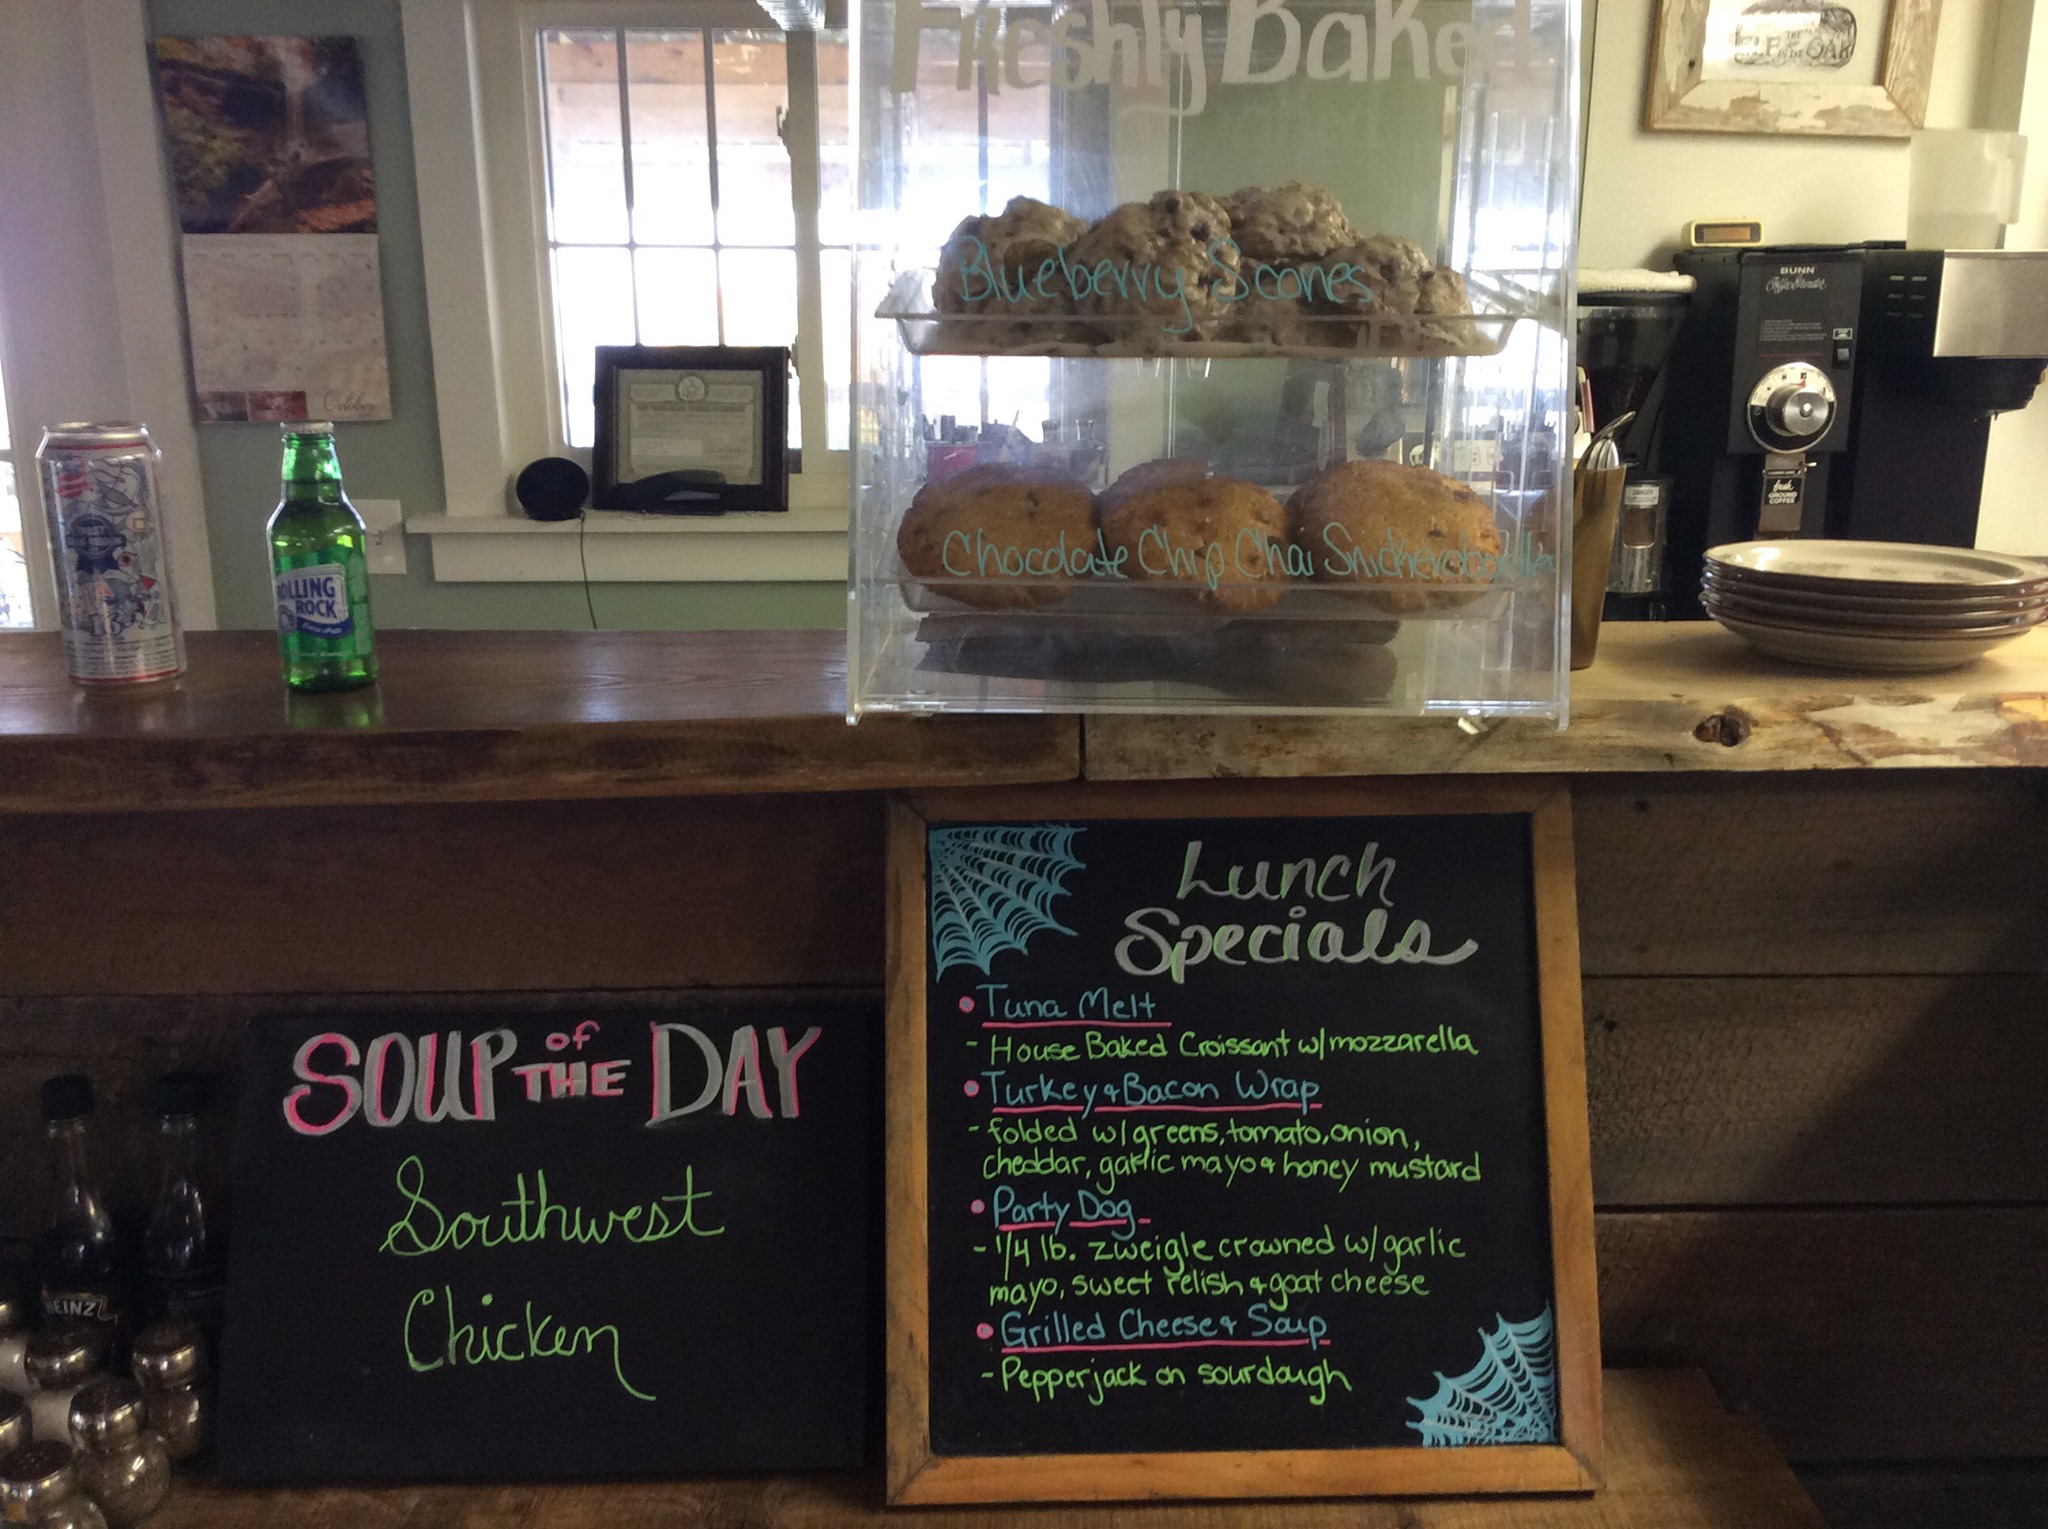 Freshly Baked
THE
IN THE OAK
Blueberry Scones
BUNN
October
fresh
GROUND
COFFEE
DANGER
ROLLING
ROCK
Chocolate Chip Chai Snickerdoodle
Lunch
Specials
• Tuna Melt
- House Baked Croissant w/mozzarella
• Turkey & Bacon Wrap
- folded w/greens, tomato, onion,
cheddar, garlic mayo & honey mustard
• Party Dog
- 1/4 lb. zweigle crowned w/garlic
mayo, sweet relish & goat cheese
• Grilled Cheese & Soup
- Pepperjack on sourdough
SOUP of THE DAY
Southwest
Chicken
HEINZ